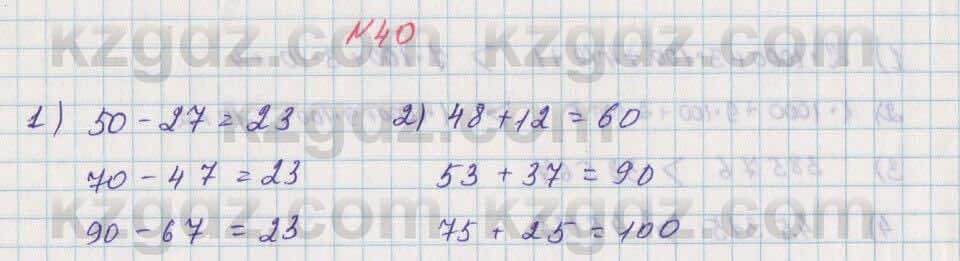 №40
1) 50 - 27 = 23 2) 48 + 12 = 60
70 - 47 = 23 53 + 37 = 90
90 - 67 = 23 75 + 25 = 100
kzgdz.com kzgdz.com
kzgdz.com kzgdz.com
kzgdz.com kzgdz.com